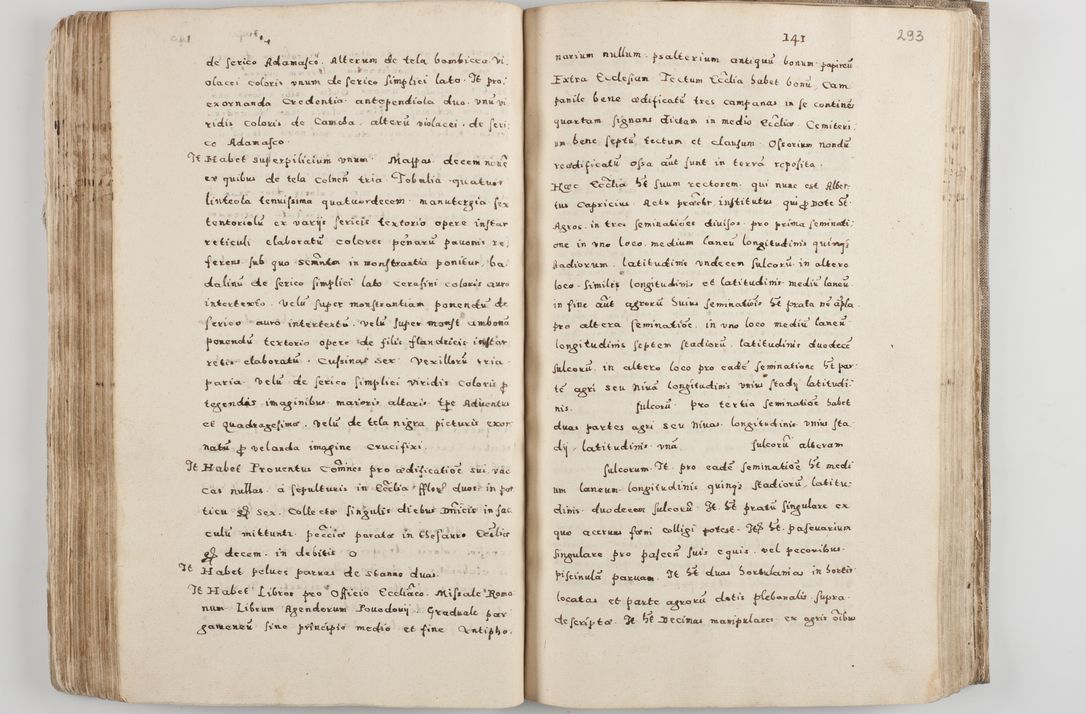 de serico Adamasco. Alterum de tela bombicea. Vi
olacei coloris vnum de serico simplici lato. It pro,
exornanda Credentia antependiola duo. vnū vi
ridis coloris de Camcha. alterū violacei. de seri
co Adamasco.
It Habet superpilicium vnum. Mappas decem novē
ex quibus de tela Colneñ tria Tobalia quatuor
linteola tenuissima quatuordecem. manutergia sex
tentoriolū ex varijs sericis textorio opere instar
reticuli elaboratū colores pēnarū pavonis re,
ferens sub quo in monstrantia ponitur. ba,
dalinū de serico simplici lato cerasini coloris auro
intertexto. Velū super monstrantiam ponendū de
serico auro intertextū. velū super monst ambona
ponendū textorio opere de filis flandricis instar
retis elaboratū. Cussinos sex Vexillorū tria
paria. Velū de serico simplici viridis coloris p
tegendis imaginibus maioris altaris tpe Aduentus
et quadragesimæ. velū de tela nigra picturis exor
natū p velanda imagine Crucifixi.
It Habet Prouentus Cōmnes pro ædificatiōe sui. vac
cas nullas. a sepulturis in Ecclia fflor duos in por
ticu sex. Collecta singulis diebus Dnicis in sac
culū mittunti. peccia parata in thesauro Eccliæ
decem. in debitis o
It Habet pelues paruas de stanno duas.
It Habet Libros pro Officio Eccliaco. Missale Roma
num Librum Agendorum Povodovij. Graduale par
gameneū sine principio medio et fine Antipho,
141
293
narium nullum. psalterium antiquū bonum papireū
Extra Ecclesiam Tectum Ecclia habet bonū, Cam
panile bene ædificatū tres campanas in se continēs
quartam signans dictam in medio Eccliæ. Cemiteri,
um bene septū tectum et clausum. Ossorium nondū
reædificatū ossa aūt sunt in terra reposita.
Hæc Ecclia ht suum rectorem. qui nunc est Alber
tus Capricius. Retu præsbr institutus qui p Dote ht.
Agros in tres seminatiōes divisos pro prima seminati
one in vno loco medium laneū longitudinis quinqs
stadiorum. latitudinis vndecem sulcorū in altero
loco. Similes longitudinis et latitudinis mediū laneū
in fine aūt agrorū huius seminatiōis ht prata nō apla
pro altera seminatiōe. in vno loco mediū laneū
longitudinis septem stadiorū. latitudinis duodece
sulcorū. in altero loco pro eadē seminatione ht par
tē agri seu Nivā longitudinis vnius stadij latitudi
nis. sulcorū. pro tertia seminatiōe habet
duas partes agri seu nivas longitudinis vnius sta
dij. latitudinis vnā sulcorū alteram
sulcorum. It. pro eadē seminatiōe ht medi
um laneum longitudinis quinqs stadiorū. latitu
dinis duodecem sulcorū. It. ht pratū singulare ex
quo acervus fœni colligi potest. It ht. pascuarium
singulare pro pascen suis equis. vel pecoribus.
Piscinulā parvam. It ht duas hortulanias in hortis
locatas et parte agrorū dotis plebanalis supra
descriptæ. It ht Decimas manipulares ex agris oibus